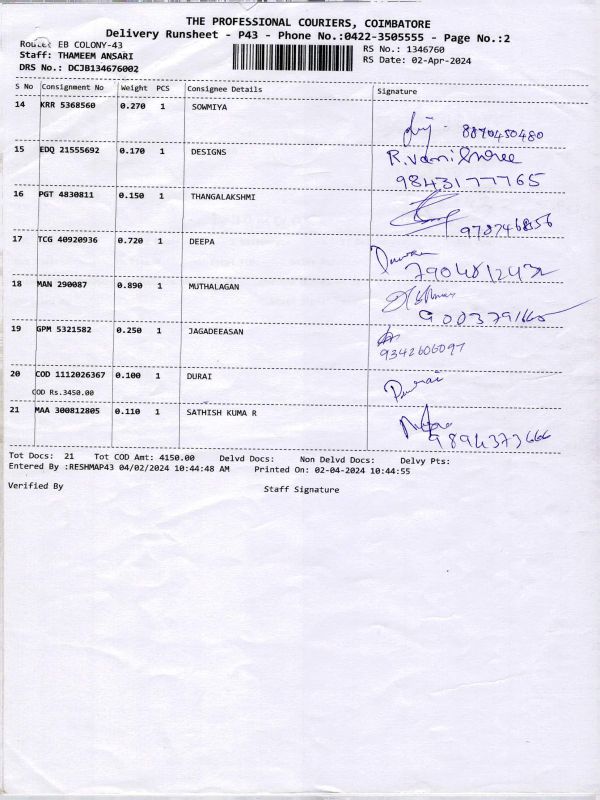 THE PROFESSIONAL COURIERS, COIMBATORE
Delivery Runsheet - P43 - Phone No.:0422-3505555 - Page No.:2
Route: EB COLONY-43 RS No.: 1346760
Staff: THAMEEM ANSARI RS Date: 02-Apr-2024
DRS No.: DCJB134676002
S No Consignment No Weight PCS Consignee Details Signature
14 KRR 5368560 0.270 1 SOWMIYA
8870450480
15 EDQ 21555692 0.170 1 DESIGNS R.Vamilshree
9843177765
16 PGT 4830811 0.150 1 THANGALAKSHMI
17 TCG 40920936 0.720 1 DEEPA
18 MAN 290087 0.890 1 MUTHALAGAN
19 GPM 5321582 0.250 1 JAGADEEASAN
9342606097
20 COD 1112026367 0.100 1 DURAI
COD Rs.3450.00
21 MAA 300812805 0.110 1 SATHISH KUMA R
9894373666
Tot Docs: 21 Tot COD Amt: 4150.00 Delvd Docs: Non Delvd Docs: Delvy Pts:
Entered By :RESHMAP43 04/02/2024 10:44:48 AM Printed On: 02-04-2024 10:44:55
Verified By Staff Signature